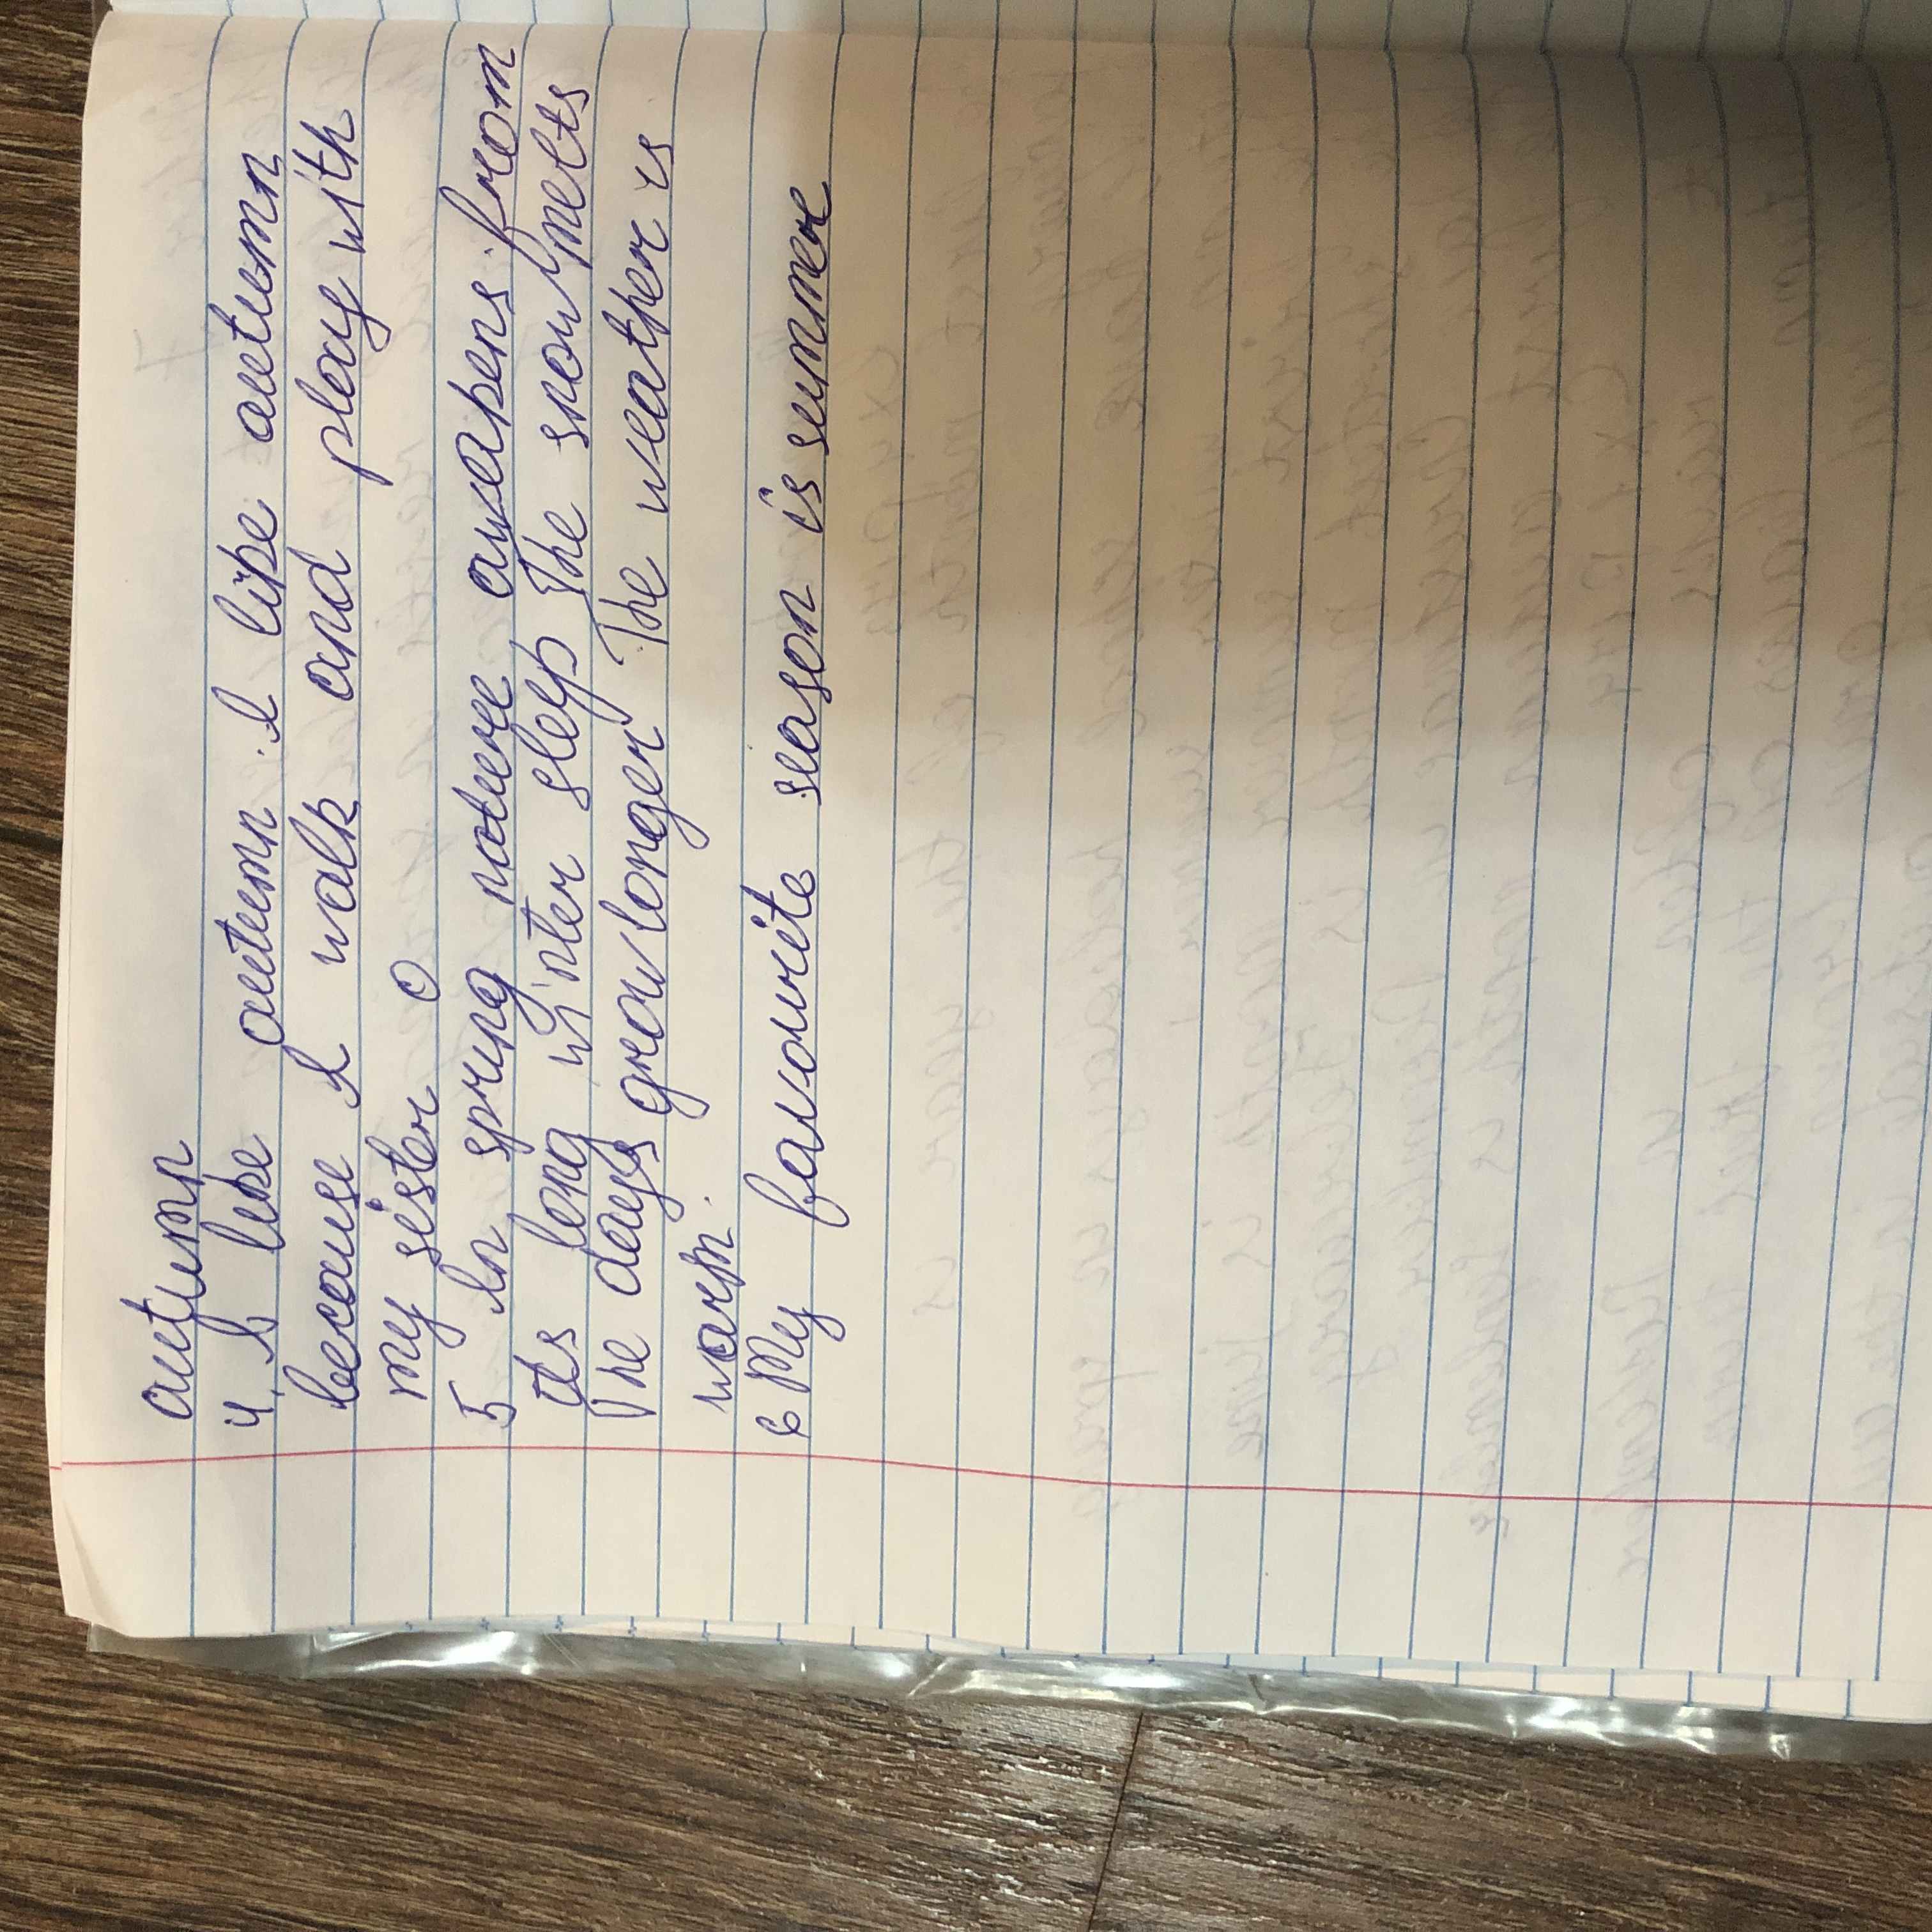 autumn
4. I like autumn. I like autumn
because I walk and play with
my sister
5 In spring nature awakens from
its long winter sleep The snow melts
The days grow longer The weather is
warm.
6 My favourite season is summer